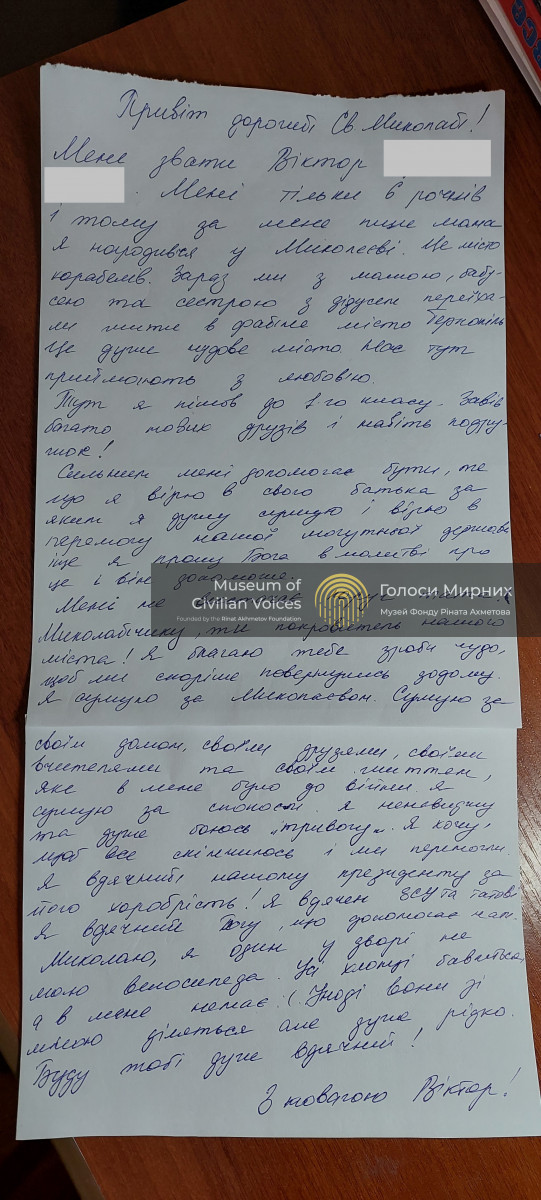 Привіт дорогий Св. Миколай!
Мене звати Віктор
. Мені тільки 6 рочків
і тому за мене пише мама
Я народився у Миколаєві. Це місто
корабелів. Зараз ми з мамою, бабу-
сею та сестрою з дідусем переїха-
ли жити в файне місто Тернопіль
Це дуже чудове місто. Нас тут
приймають з любов'ю.
Тут я пішов до 1-го класу. Завів
багато нових друзів і навіть подру-
жок!
Сильним мені допомагає бути, те
що я вірю в свого батька за
яким я дуже сумую і вірю в
перемогу нашої могутньої держави
ще я прошу Бога в молитві про
це і він допоможе.
Мені не
Миколайчику, ти покровитель нашого
міста! Я благаю тебе зроби чудо,
щоб ми скоріше повернулись додому.
Я сумую за Миколаєвом. Сумую за
своїм домом, своїми друзями, своїми
вчителями та своїм життям,
яке в мене було до війни. Я
сумую за спокоєм. Я ненавиджу
та дуже боюсь "тривогу". Я хочу,
щоб все скінчилось і ми перемогли.
Я вдячний нашому президенту за
його хоробрість! Я вдячен ЗСУ та татові
Я вдячний Богу, що допомогає нам.
Миколаю, я один у дворі не
маю велосипеда. Усі хлопці бавляться,
а в мене немає :(. Іноді вони зі
мною діляться але дуже рідко.
Буду тобі дуже вдячний!
З повагою Віктор!
Museum of
Civilian Voices
Founded by the Rinat Akhmetov Foundation
Голоси Мирних
Музей Фонду Ріната Ахметова